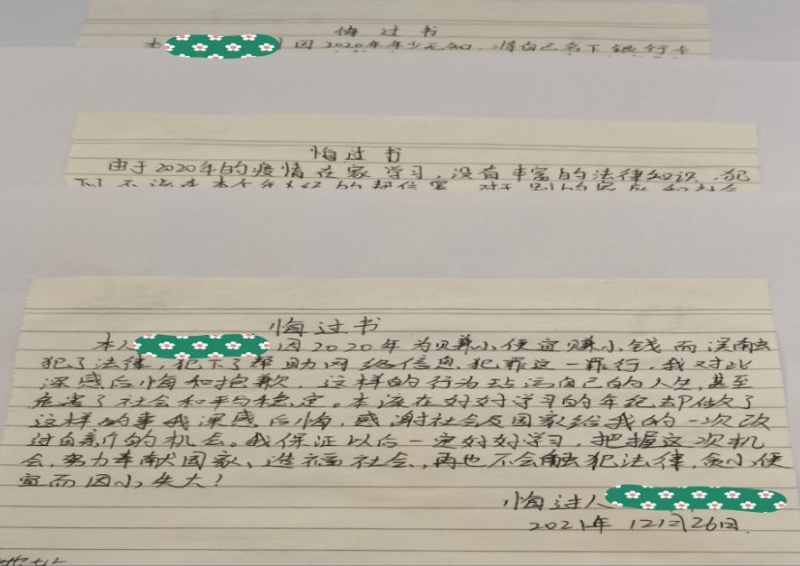 悔过书
因2020年年少无知,将自己名下银行卡
悔过书
由于2020年的疫情在家学习,没有丰富的法律知识,犯
悔过书
本人 因2020年为赚小便宜赚小钱而误触
犯了法律,犯下了帮助网络信息犯罪这一罪行,我对此
深感后悔和抱歉,这样的行为玷污自己的人生,甚至
危害了社会和平与稳定。本该在好好学习的年纪却做了
这样的事我深感后悔,感谢社会及国家给我的一次改
过自新的机会。我保证以后一定好好学习,把握这次机
会,努力奉献国家、造福社会,再也不会触犯法律,贪小便
宜而因小失大!
悔过人
2021年12月26日